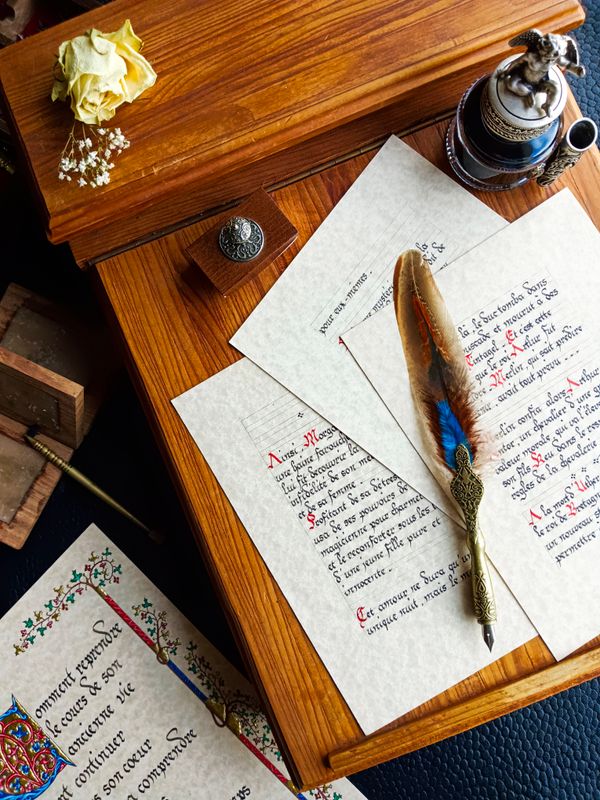 pour eux-mêmes.
là le duc tomba dans
uscade et mourut à des
Tintagel. Et c'est cette
que le roi Arthur fut
Merlin, qui sait prédire
avait tout prévu ...
erlin confia alors Arthur
nter, un chevalier d'une
valeur morale, qui va l'élever
son fils Keu dans le respect
règles de la chevalerie
A la mort d'Uther
le roi de Bretagne
un nouveau
permettre
Ainsi, Morga
une haine farouche
lui fit découvrir la
infidélité de son
et de sa femme.
Profitant de sa détresse
usa de ses pouvoirs de
magicienne pour charmer
et le réconforter sous les
d'une jeune fille pure et
innocente.
Cet amour ne dura qu'u
unique nuit, mais le m
omment reprendre
le cours de son
ancienne vie
nt continuer
s son coeur
à comprendre